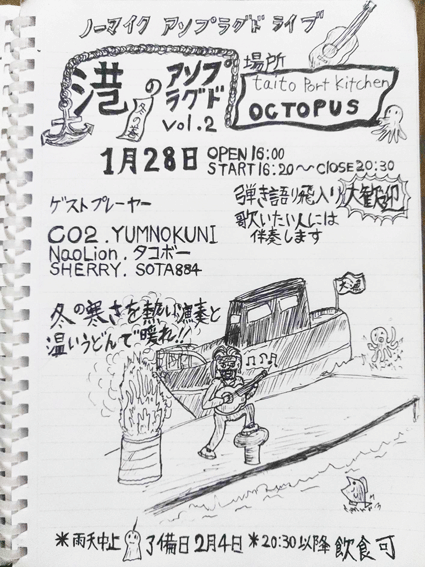 ノーマイク アソプラグド ライブ
港のアソプラグド
冬の巻
vol.2
場所
taito Port Kitchen
OCTOPUS
1月28日 OPEN 16:00
START 16:20〜CLOSE 20:30
ゲストプレーヤー
CO2.YUMNOKUNI
NaoLion.タコボー
SHERRY.SOTA884
弾き語り飛入り大歓迎
歌いたい人には
伴奏します
冬の寒さを熱い演奏と
温いうどんで暖れ!!
※雨天中止 予備日2月4日 ※20:30以降 飲食可